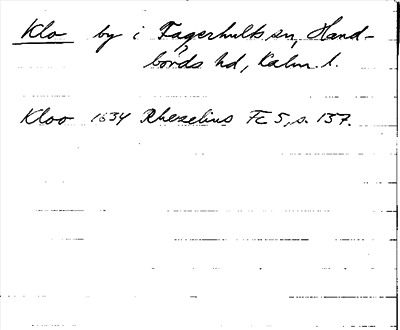 Klo by i Fagerhults sn, Hand-
börds hd, Kalm. l.
Kloo 1634 Rhezelius FC 5, s. 137.